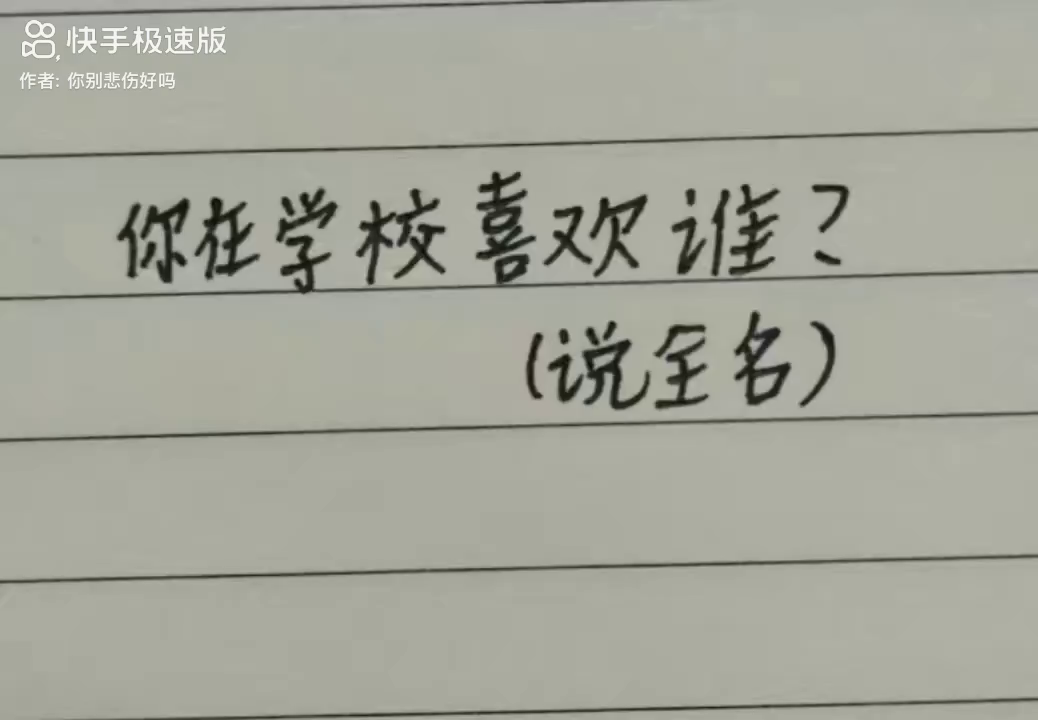 快手极速版
作者: 你别悲伤好吗
你在学校喜欢谁?
(说全名)